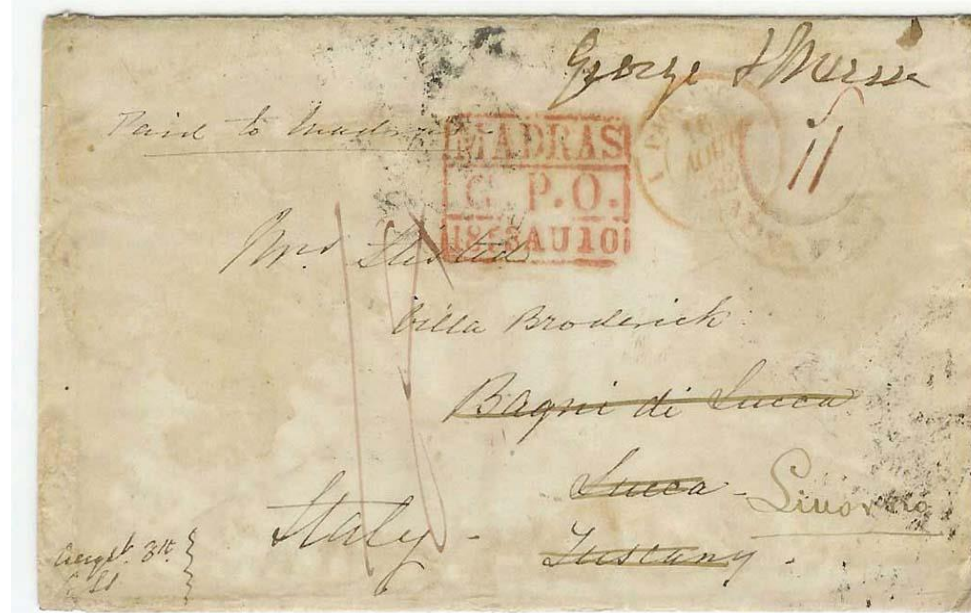 George
Paid to Madras
MADRAS
G. P. O.
1853 AU 10
11
Mrs Stisted
Villa Broderick
Bagni di Lucca
Lucca - Livorno
Italy - Tuscany